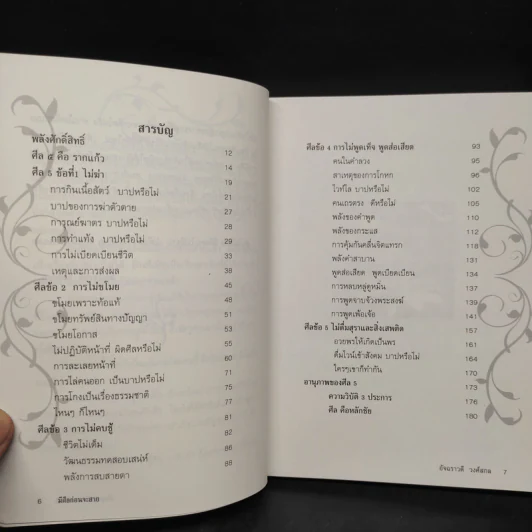 สารบัญ
พลังศักดิ์สิทธิ์ 12
ศีล ๕ คือ รากแก้ว 14
ศีล ๕ ข้อที่1 ไม่ฆ่า 19
การกินเนื้อสัตว์ บาปหรือไม่ 21
บาปของการฆ่าตัวตาย 27
การุณย์ฆาตร บาปหรือไม่ 28
การทำแท้ง บาปหรือไม่ 29
การไม่เบียดเบียนชีวิต 33
เหตุและการส่งผล 38
ศีลข้อ 2 การไม่ขโมย 45
ขโมยเพราะท้อแท้ 48
ขโมยทรัพย์สินทางปัญญา 50
ขโมยโอกาส 52
ไม่ปฏิบัติหน้าที่ ผิดศีลหรือไม่ 55
การละเลยหน้าที่ 60
การไล่คนออก เป็นบาปหรือไม่ 71
การโกงเป็นเรื่องธรรมชาติ 75
ไหนๆ ก็ไหนๆ 77
ศีลข้อ 3 การไม่คบชู้ 81
ชีวิตไม่เต็ม 82
วัฒนธรรมทดสอบเสน่ห์ 86
พลังการสบสายตา 88
6 มีศีลก่อนจะสาย
ศีลข้อ 4 การไม่พูดเท็จ พูดส่อเสียด 93
คนในคำลวง 95
สาเหตุของการโกหก 96
ไวท์ไล บาปหรือไม่ 102
คนเถรตรง ดีหรือไม่ 105
พลังของคำพูด 110
พลังของกระแส 112
การคุ้มกันคลื่นจิตแทรก 118
พลังคำสาบาน 131
พูดส่อเสียด พูดเบียดเบียน 134
การหลบหลู่ดูหมิ่น 137
การพูดจาบจ้วงพระสงฆ์ 139
การพูดเพ้อเจ้อ 141
ศีลข้อ 5 ไม่ดื่มสุราและสิ่งเสพติด 157
อวยพรให้เกิดเป็นพร 161
ดื่มไวน์เข้าสังคม บาปหรือไม่ 164
ใครๆเขาก็ทำกัน 170
อานุภาพของศีล 5 171
ความวิบัติ 3 ประการ 176
ศีล คือหลักชัย 180
อัจฉราวดี วงศ์สกล 7